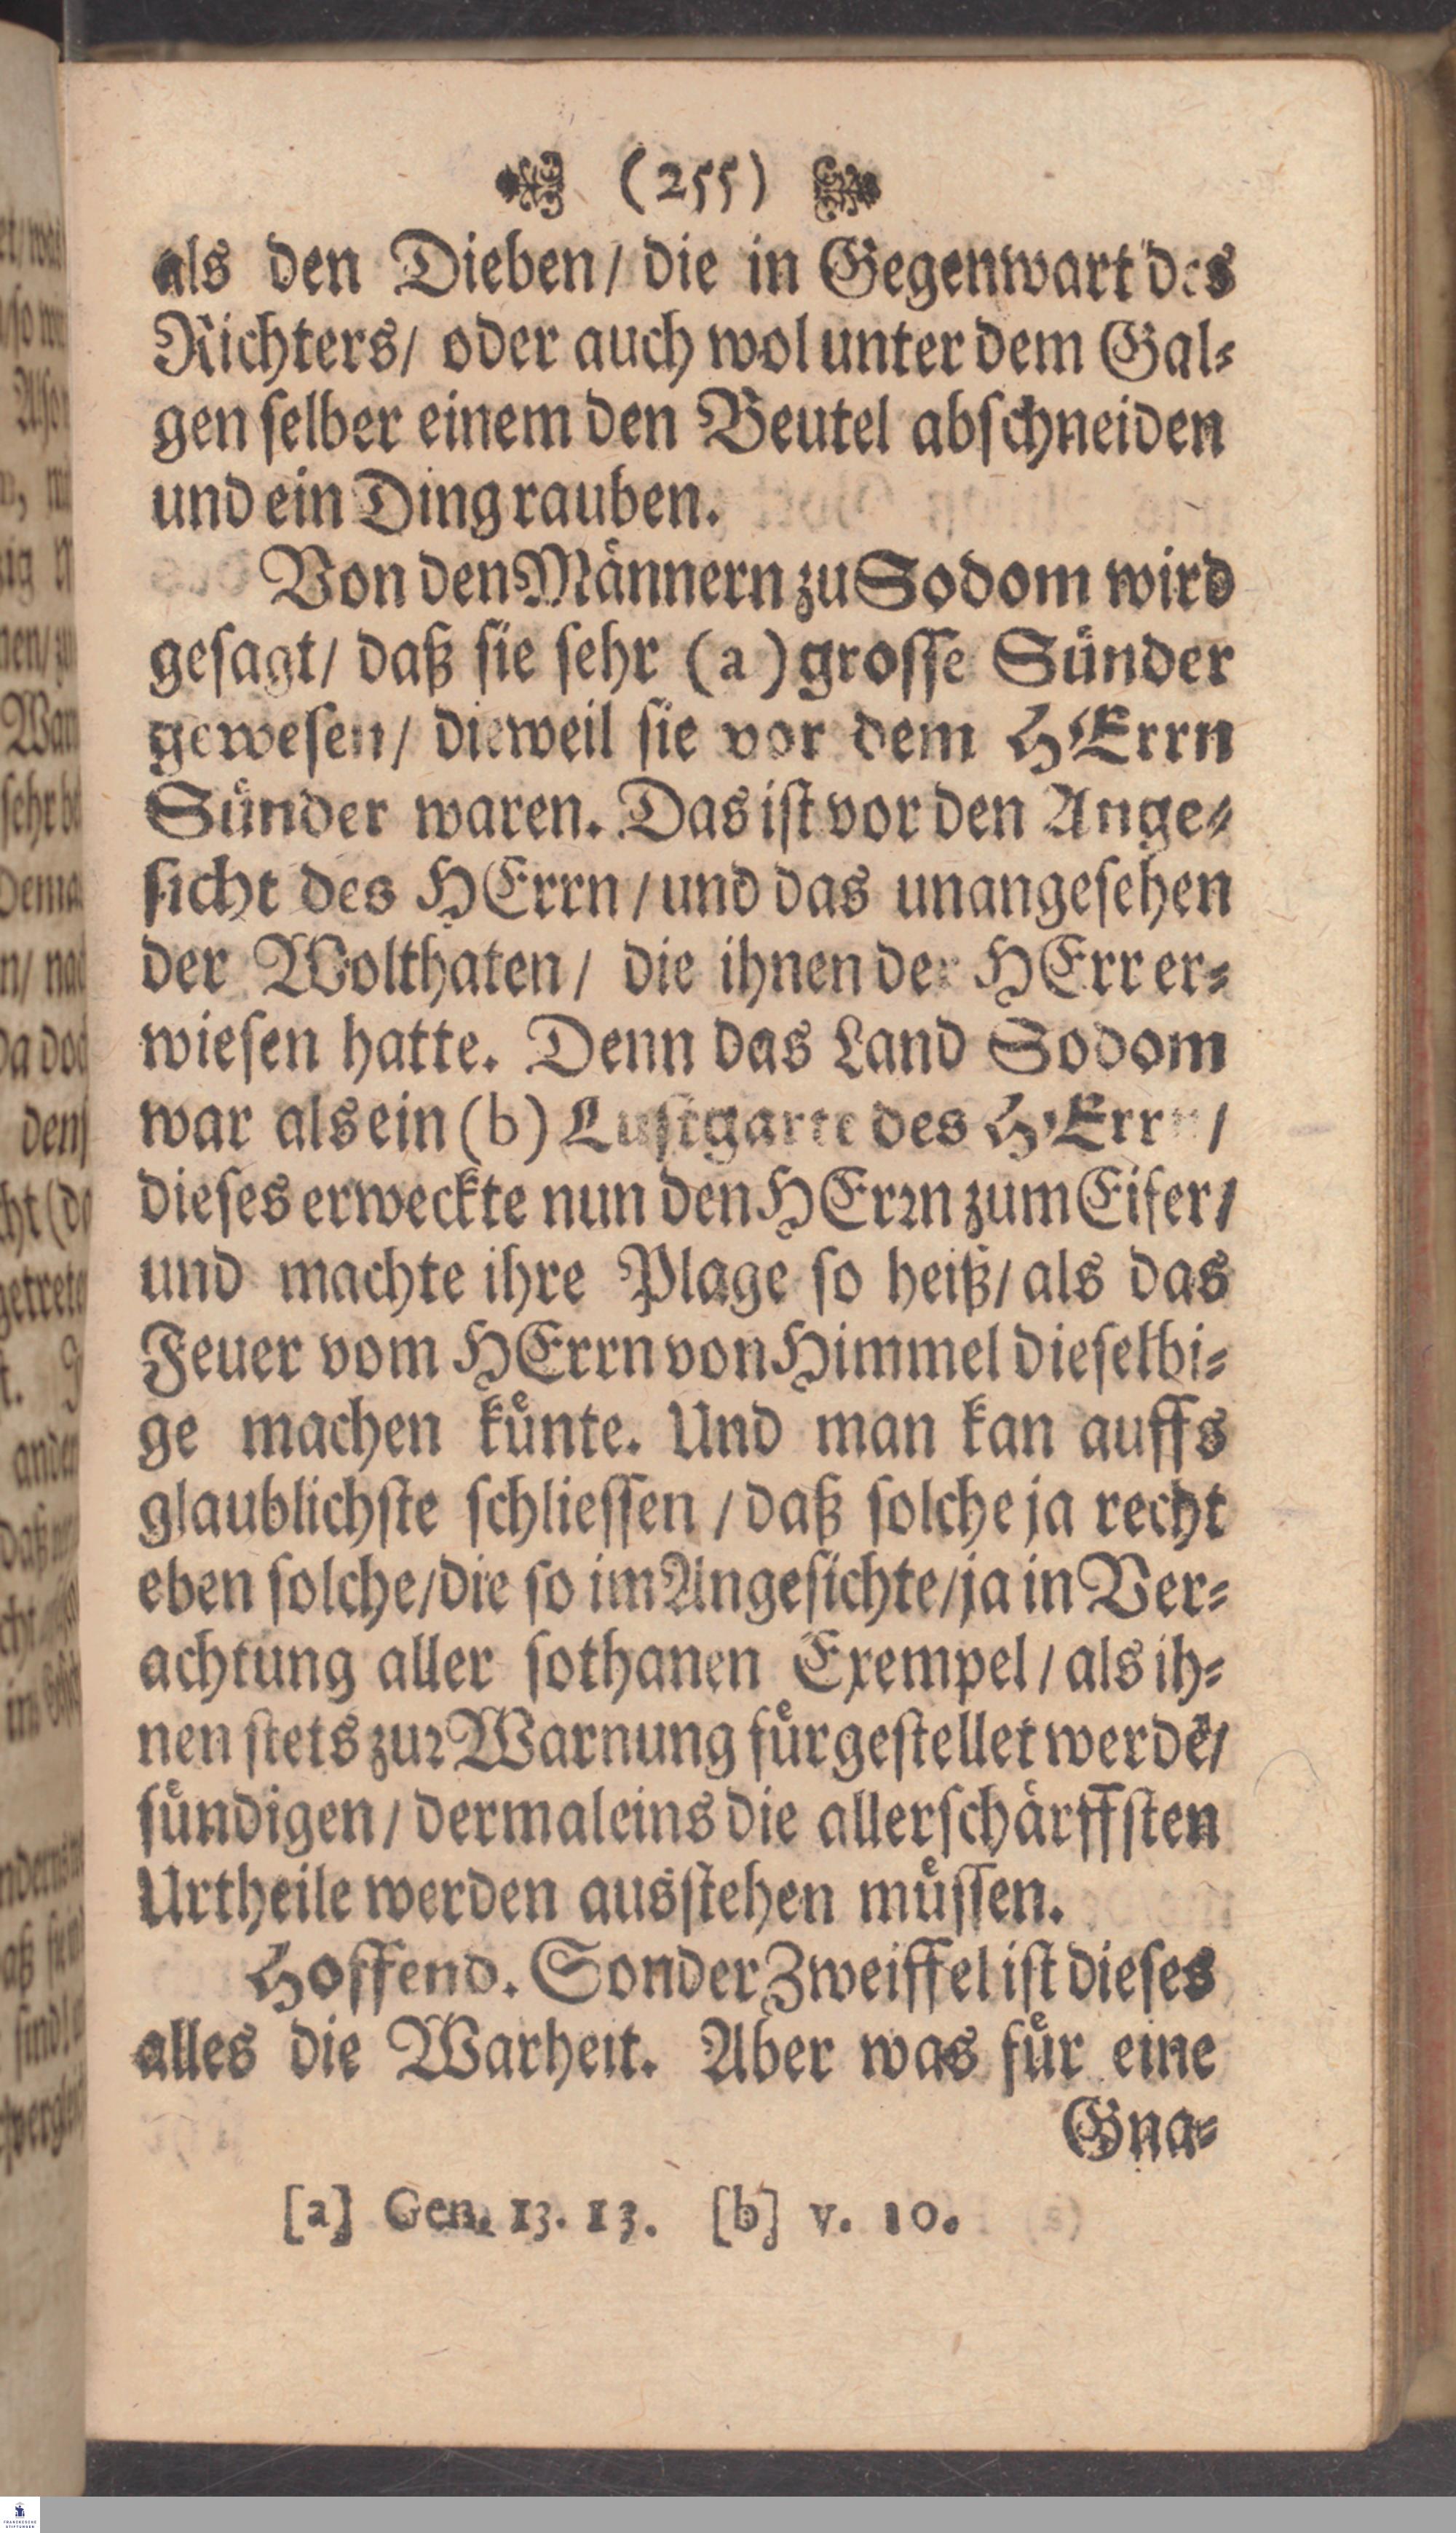 (255)
als den Dieben/ die in Gegenwart des
Richters/ oder auch wol unter dem Gal⸗
gen ſelber einem den Beutel abſchneiden
und ein Ding rauben.
Von den Männern zu Sodom wird
geſagt/ daß ſie ſehr (a) groſſe Sünder
geweſen/ dieweil ſie vor dem HErrn
Sünder waren. Das iſt vor den Ange⸗
ſicht des HErrn / und das unangeſehen
der Wolthaten/ die ihnen der HErr er⸗
wieſen hatte. Denn das Land Sodom
war als ein (b) Luſtgarte des HErrn/
dieſes erweckte nun den HErꝛn zum Eifer/
und machte ihre Plage ſo heiß/ als das
Feuer vom HErrn von Himmel dieſelbi⸗
ge machen künte. Und man kan auffs
glaublichſte ſchlieſſen / daß ſolche ja recht
eben ſolche/ die ſo im Angeſichte/ ja in Ver⸗
achtung aller ſothanen Exempel / als ih⸗
nen ſtets zuꝛ Warnung fürgeſtellet werdē/
ſündigen / dermaleins die allerſchärffſten
Urtheile werden ausſtehen müſſen.
Hoffend. Sonder Zweiffel iſt dieſes
alles die Warheit. Aber was für eine
Gna⸗
[a] Gen. 13. 13. [b] v. 10.